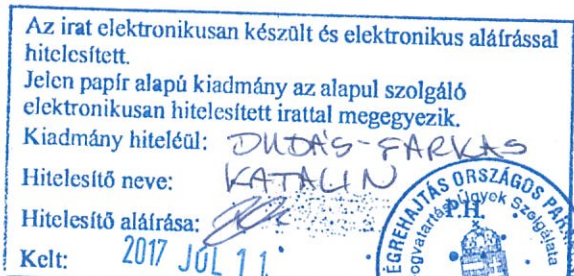 Az irat elektronikusan készült és elektronikus aláírással
hitelesített.
Jelen papír alapú kiadmány az alapul szolgáló
elektronikusan hitelesített irattal megegyezik.
Kiadmány hiteléül: DUDÁS-FARKAS
Hitelesítő neve: KATALIN
Hitelesítő aláírása:
Kelt: 2017 JÚL 11.
ÉGREHAJTÁS ORSZÁGOS PAR
ogvatartási Ügyek Szolgálata
P.H.